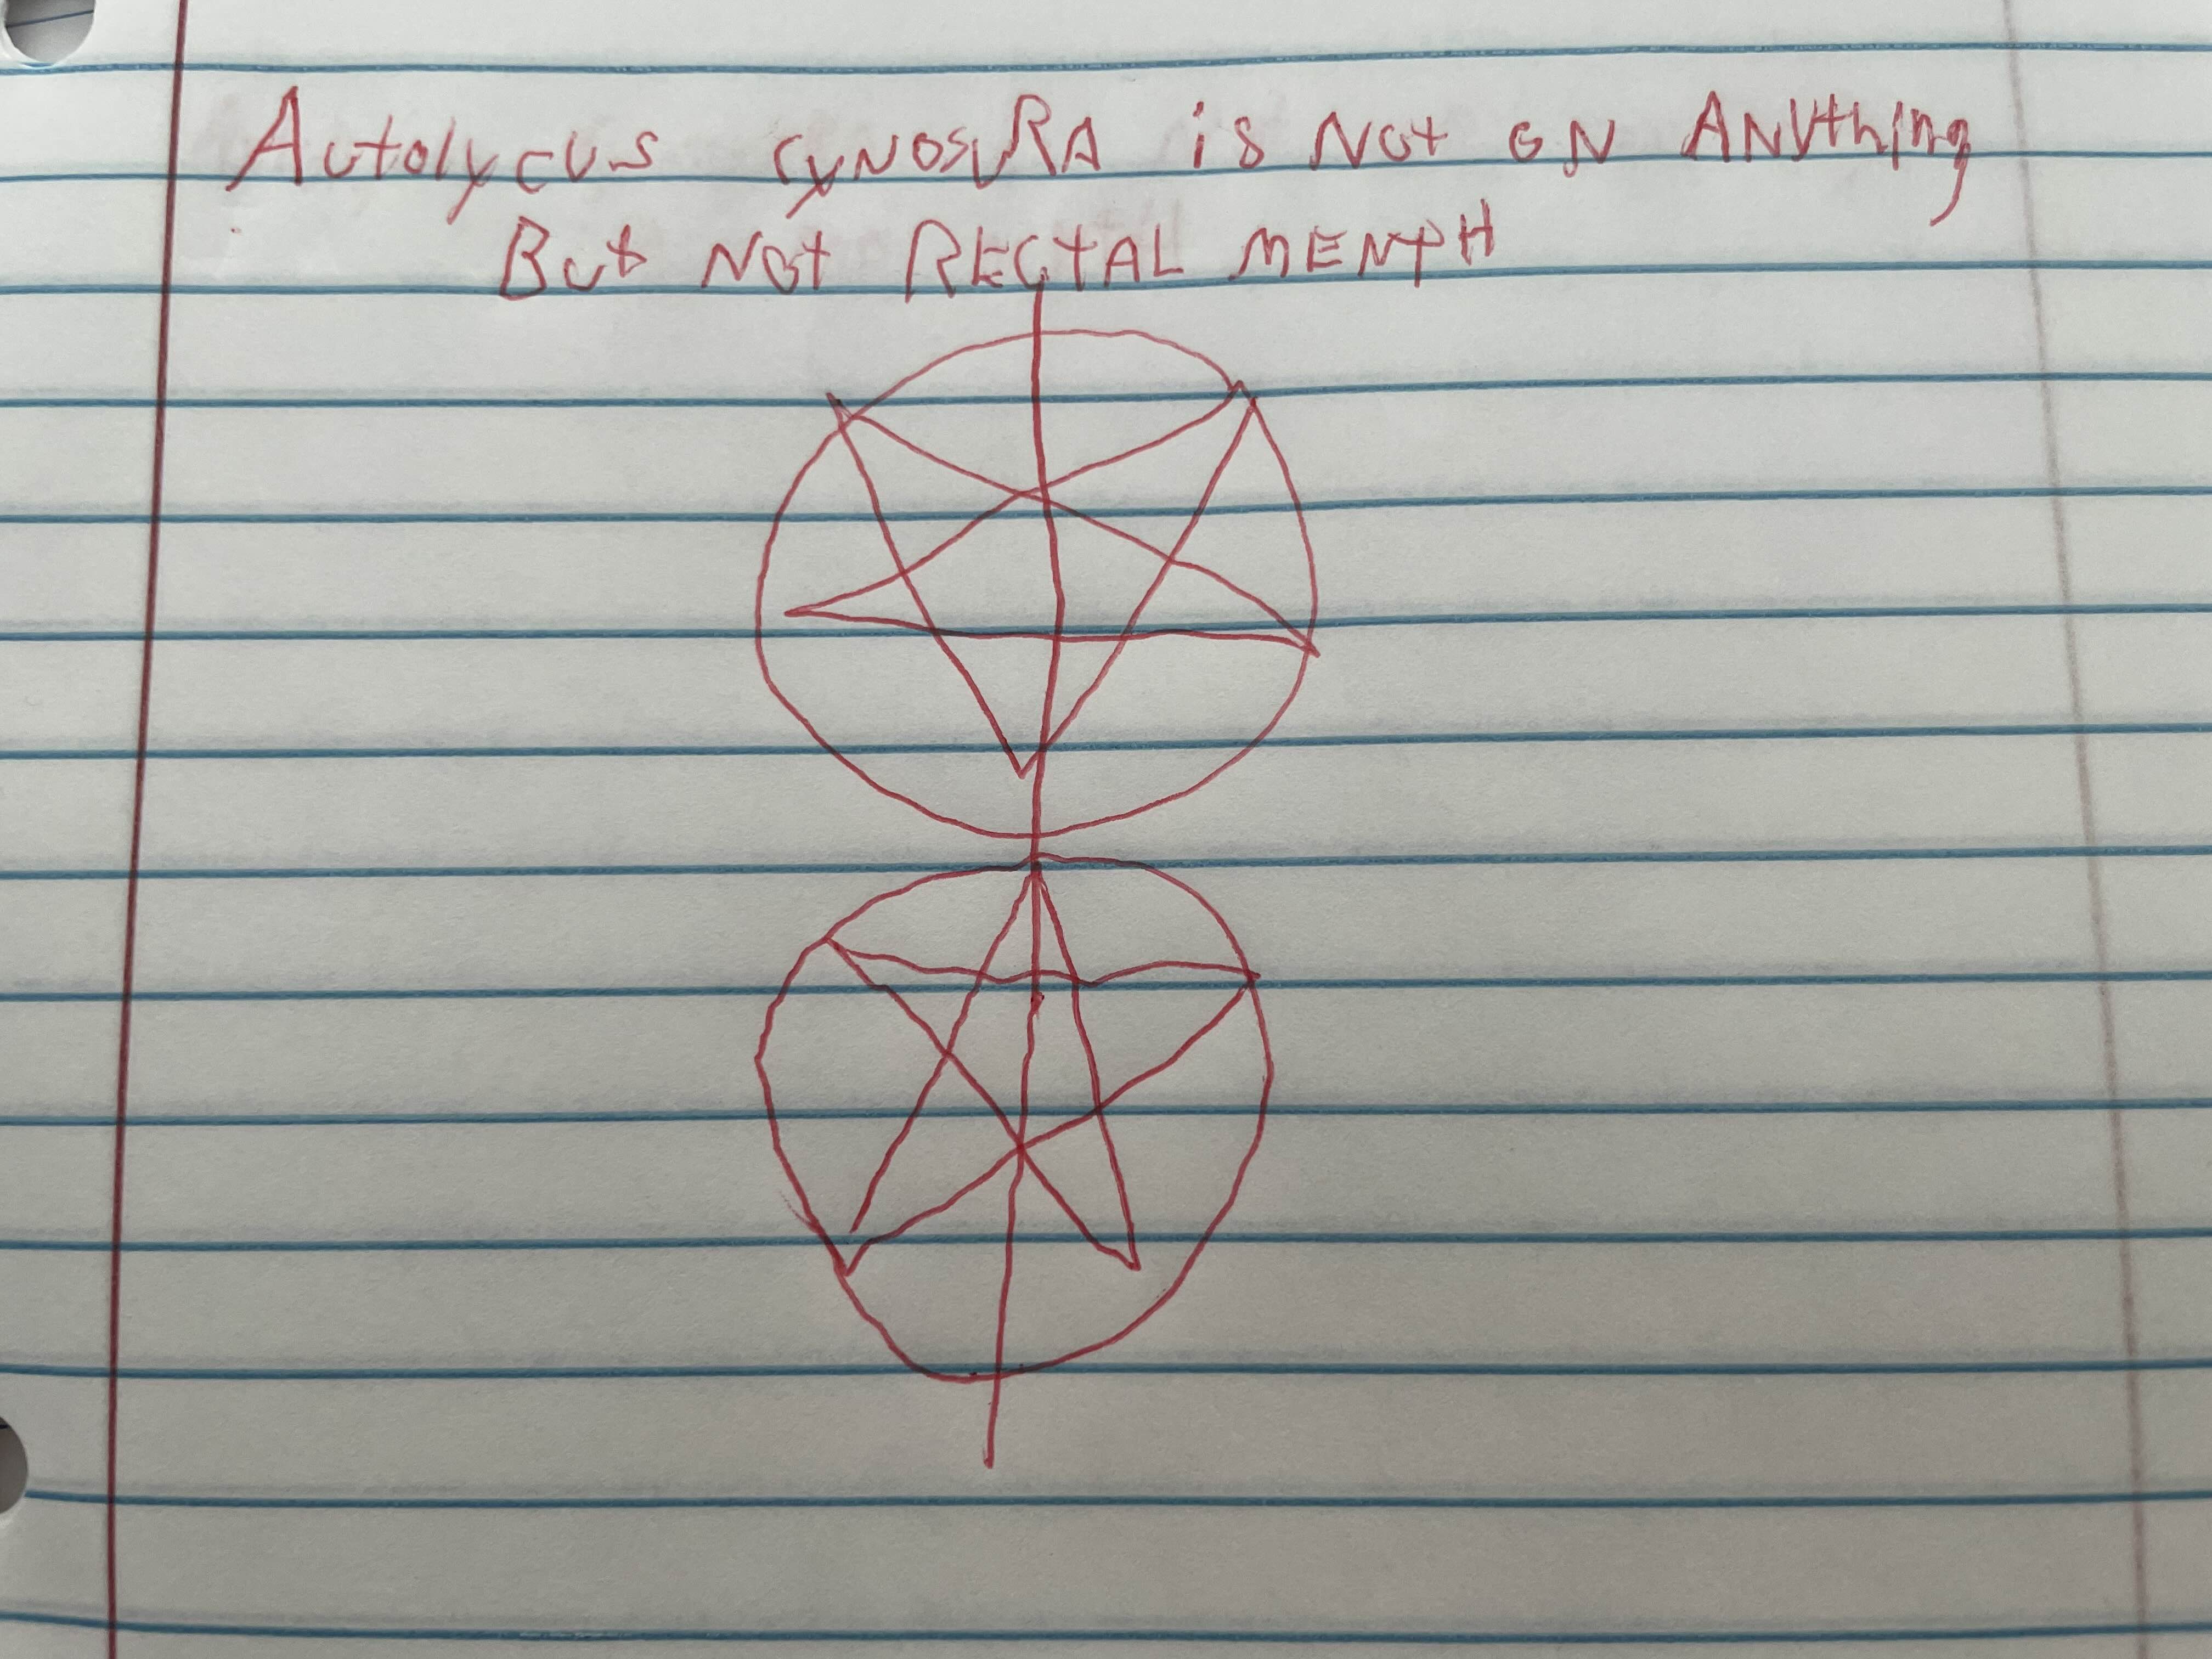 Autolycus cyNosuRA is Not oN ANything
But Not RECtAL MENtH